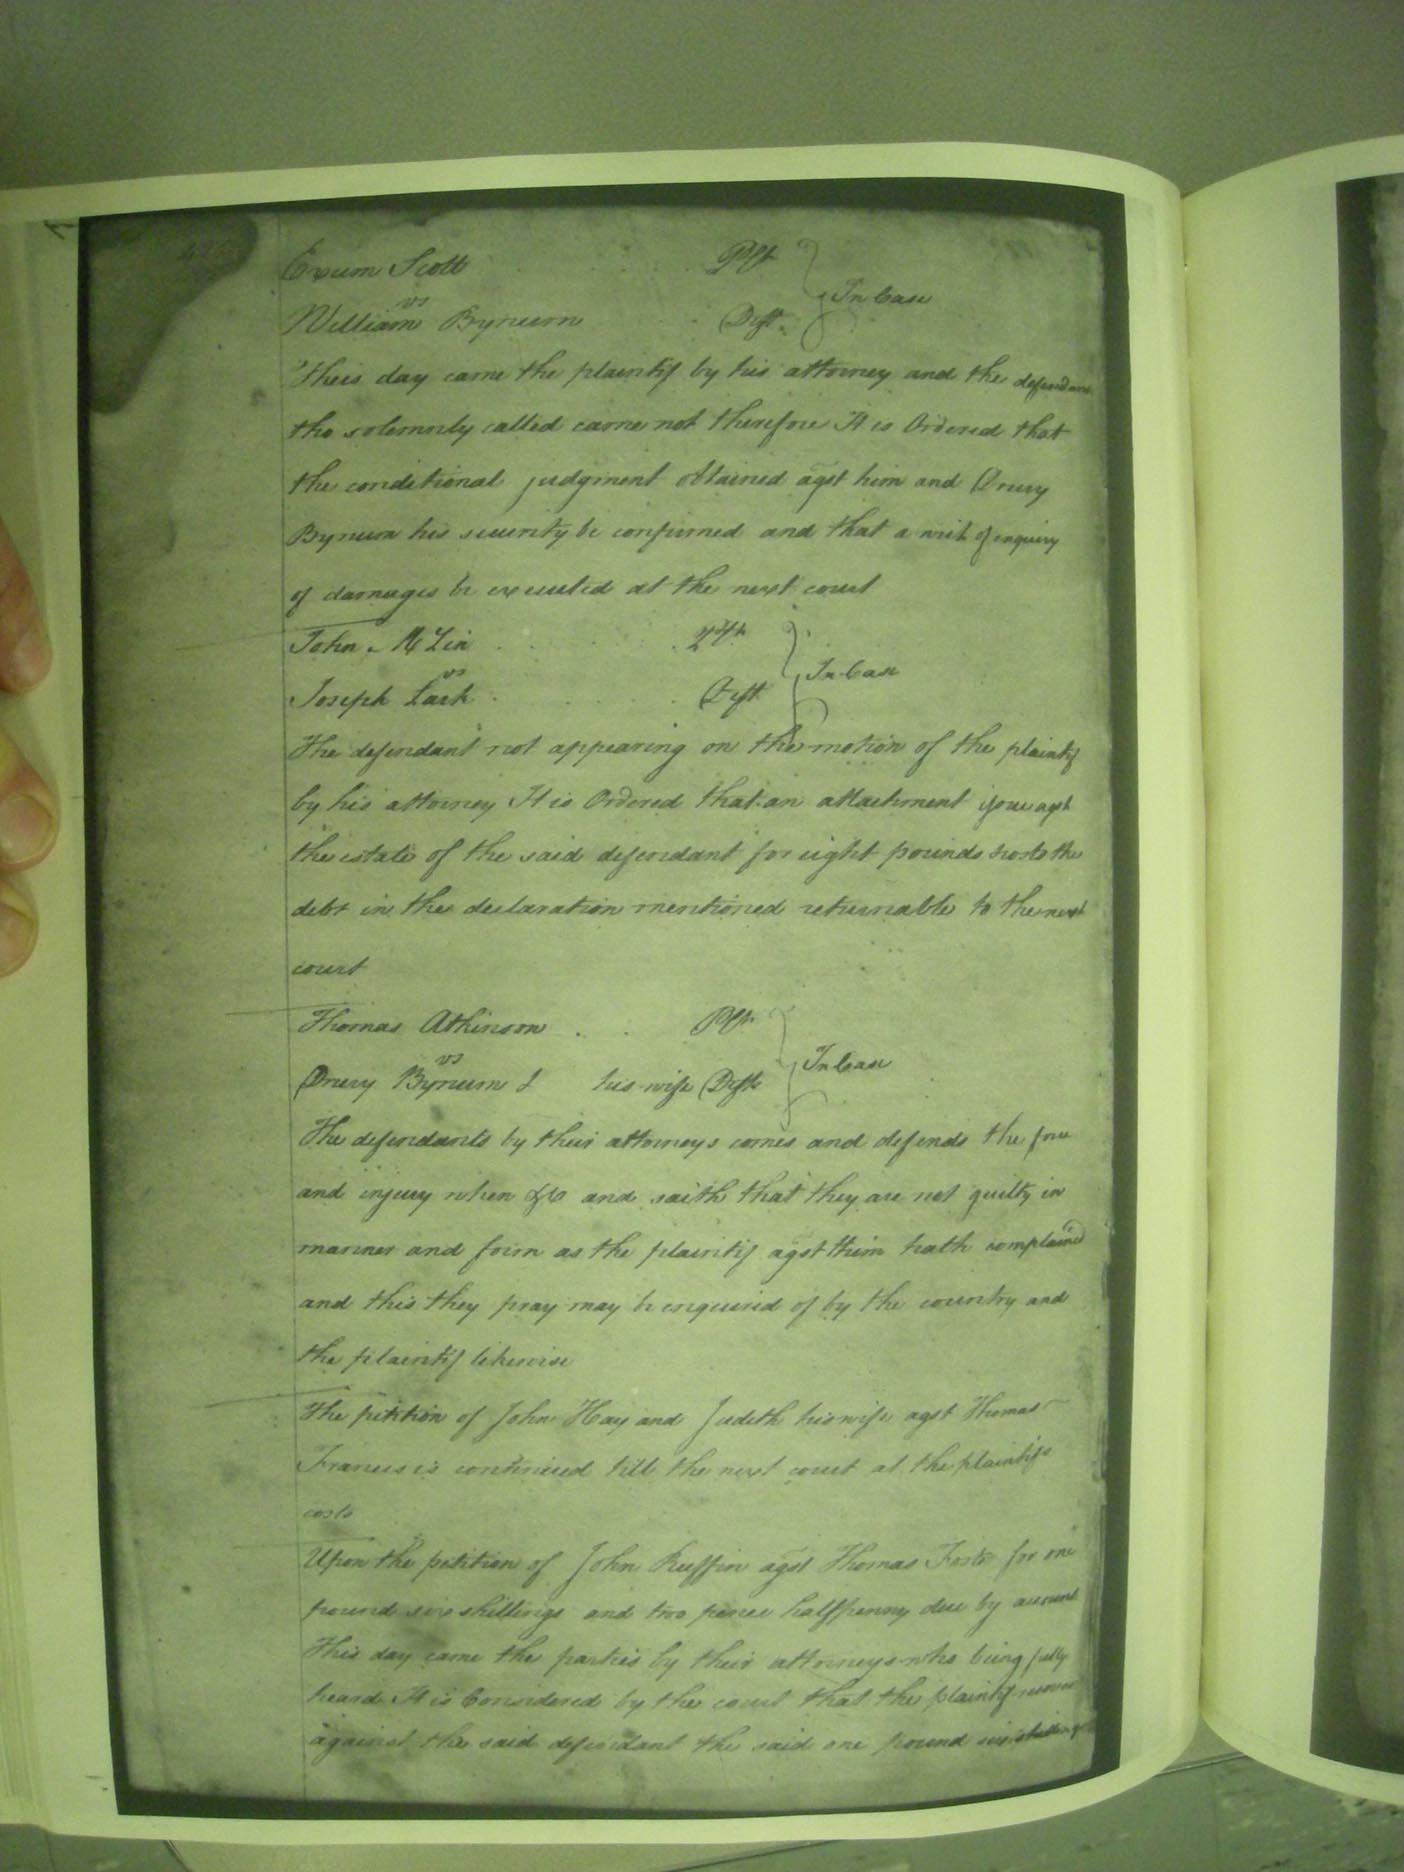 Exum Scott Plt
vs In Case
William Bynum Deft.
This day came the plaintif by his attorney and the defendant
tho solemnly called came not therefore It is Ordered that
the conditional judgment obtained agst him and Drury
Bynum his security be confirmed and that a writ of inquiry
of damages be executed at the next court
John McLin Plt
vs In Case
Joseph Lark Deft
The defendant not appearing on the motion of the plaintif
by his attorney It is Ordered that an attachment issue agst
the estate of the said defendant for eight pounds & costs the
debt in the declaration mentioned returnable to the next
court
Thomas Atkinson Plt
vs In Case
Drury Bynum & his wife Defts
The defendants by their attorneys comes and defends the force
and injury when &c and saith that they are not guilty in
manner and form as the plaintif agst them hath complained
and this they pray may be enquired of by the country and
the plaintif likewise
The petition of John Hay and Judith his wife agst Thomas
Francis is continued till the next court at the plaintifs
costs
Upon the petition of John Ruffin agst Thomas for one
pound six shillings and two pence halfpenny due by account
This day came the parties by their attorneys who being fully
heard It is Considered by the court that the plaintif recover
against the said defendant the said one pound six shillings